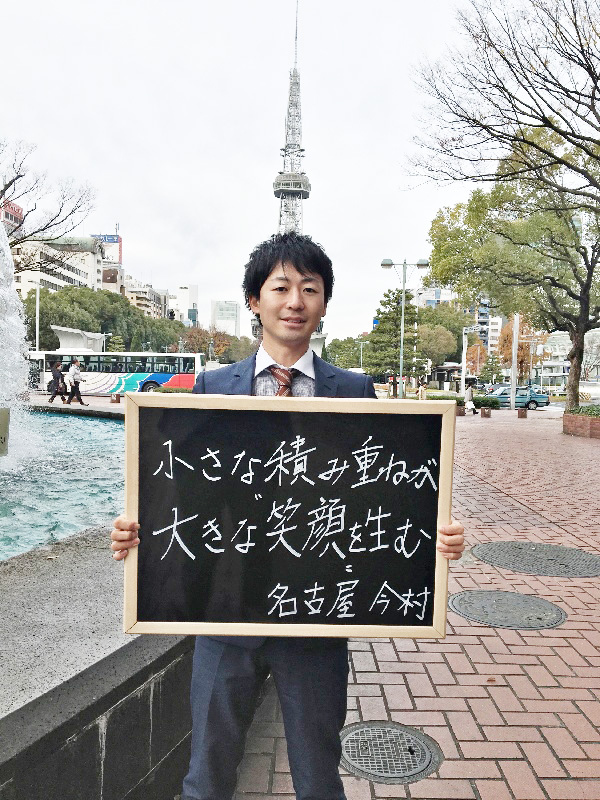 小さな積み重ねが
大きな〝笑顔〟を生む
名古屋 今村